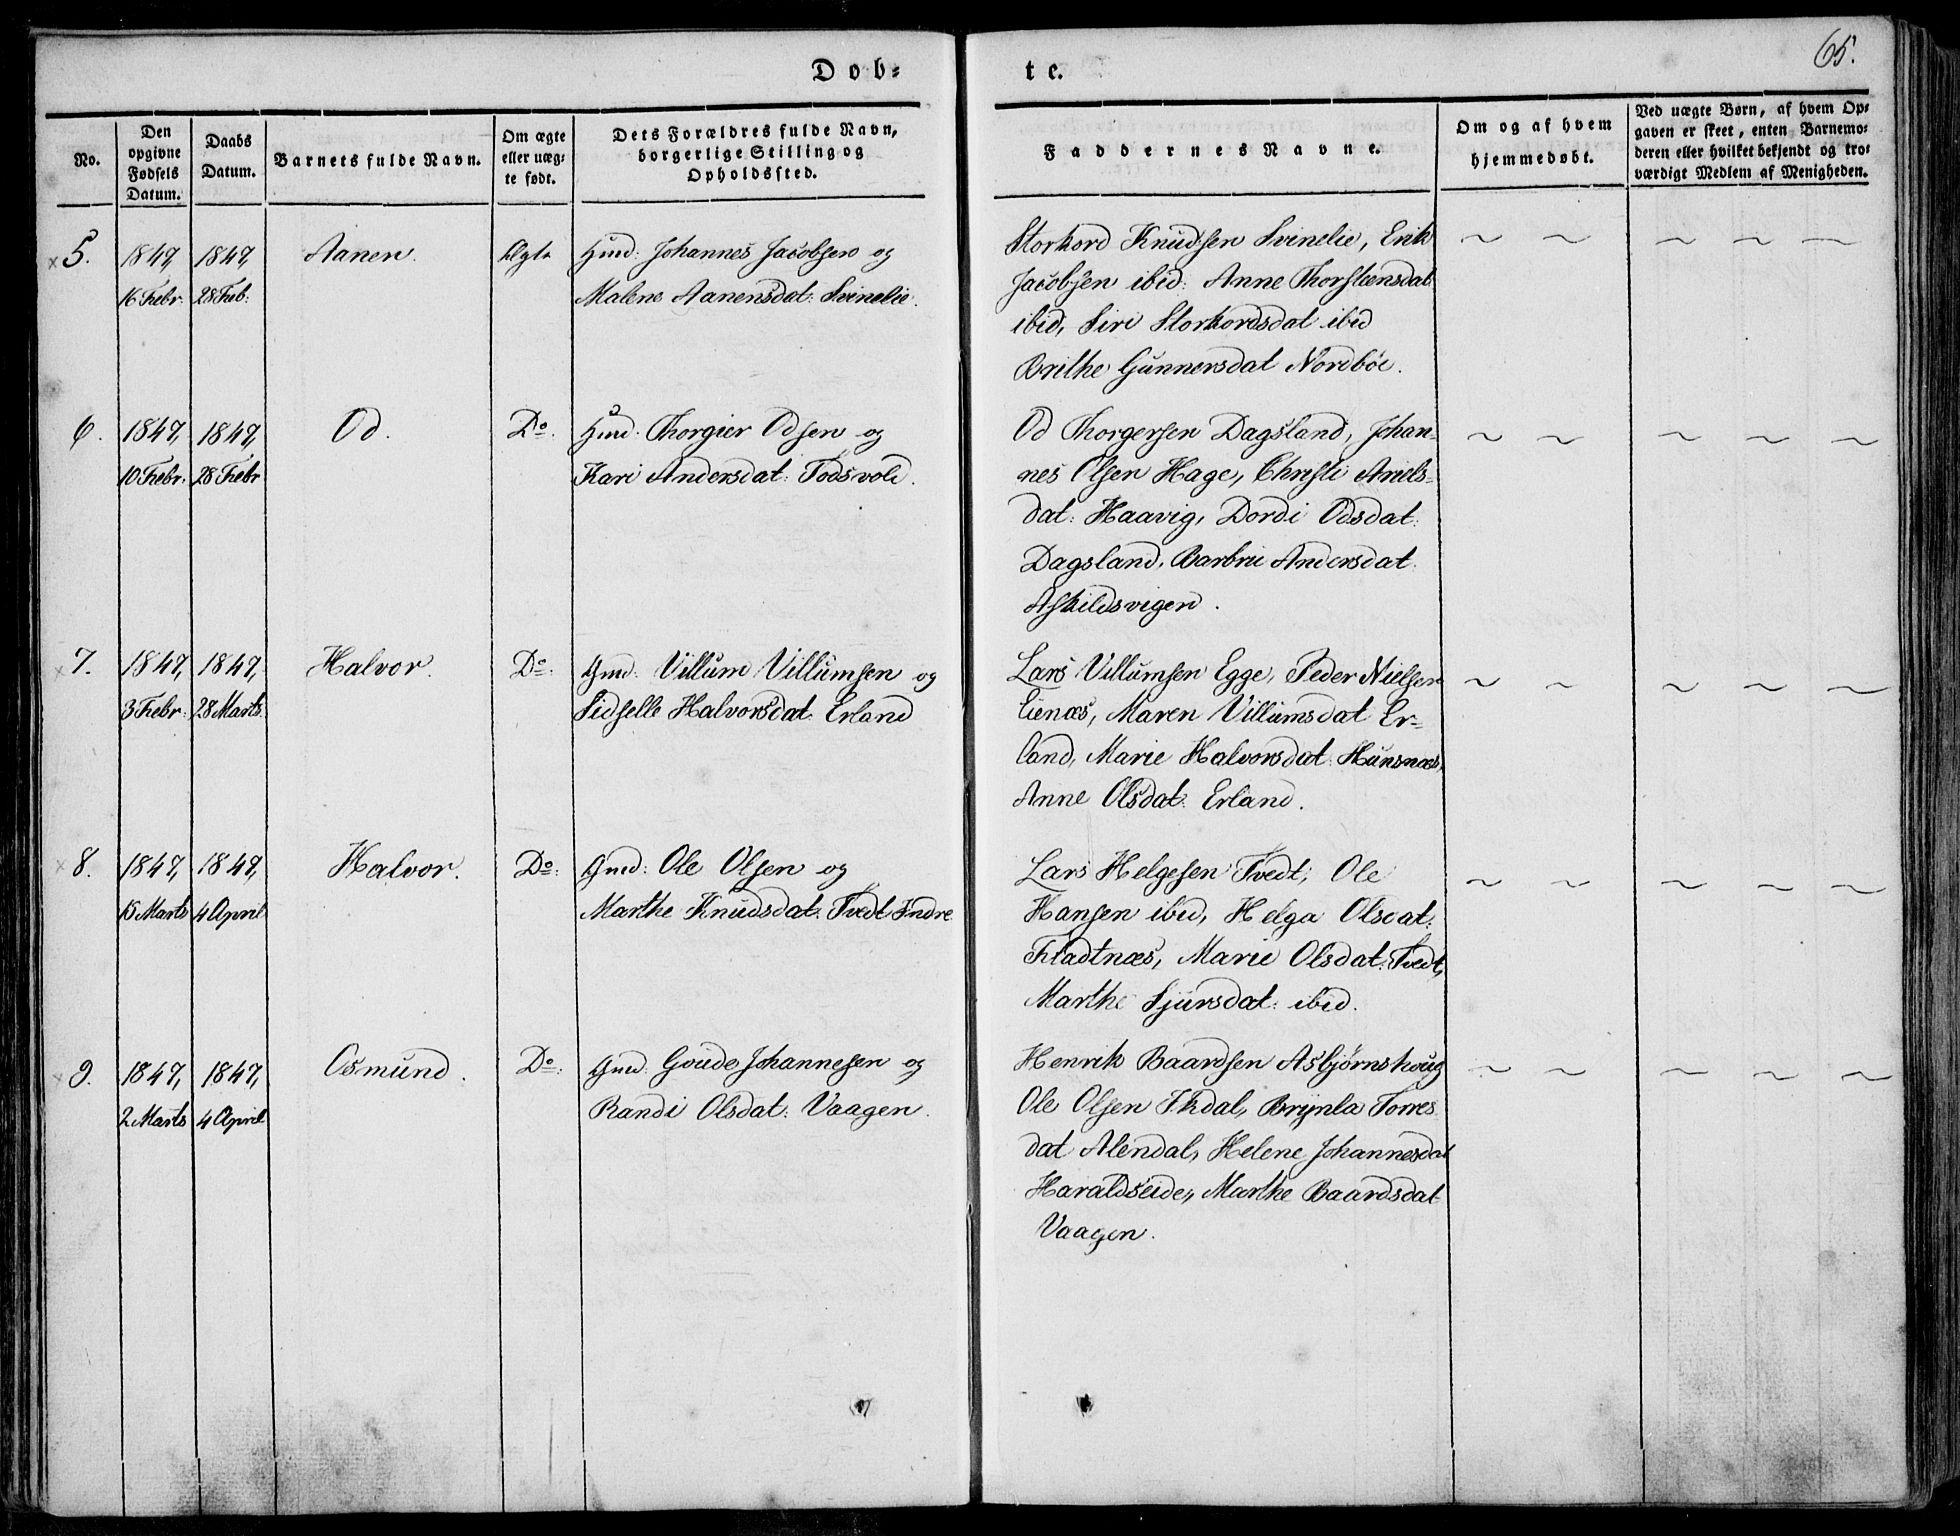 65.
Dob-
te.
No.
Den
opgivne
Fødsels
Datum.
Daabs
Datum.
Barnets fulde Navn.
Om ægte
eller uæg-
te født.
Dets Forældres fulde Navn,
borgerlige Stilling og
Opholdssted.
Faddernes Navne.
Om og af hvem
hjemmedøbt.
Ved uægte Børn, af hvem Op-
gaven er skeet, enten Barnemo-
deren eller hvilket bekjendt og tro-
værdigt Medlem af Menigheden.
5.
1847,
16 Febr:
1847,
28 Feb:
Aanen.
Ægte
Johannes Jacobsen og
Malene Aanensdat: Svinelie.
Storkord Knudsen Svinelie, Erik
Jacobsen ibid: Anne Thorsteensdat
ibid, Siri Storkordsdat ibid
Brithe Gunnersdat Nordbøe.
6.
1847,
10 Febr:
1847,
28 Febr
Od.
Do.
Thorgier Odsen og
Kari Andersdat: Todsvold.
Od Thorgersen Dagsland, Johan-
nes Olsen Hage, Christi Ariels-
dat: Haavig, Dordi Odsdat:
Dagsland, Barbrie Andersdat.
Askildsvigen.
7.
1847,
3 Febr:
1847,
28 Marts
Halvor.
Do:
Gmd: Villum Villumsen og
Sidselle Halvorsdat: Erland
Lars Villumsen Egge, Peder Nielsen
Lienæs, Maren Villumsdat Er-
land, Marie Halvorsdat: Hunsnæs,
Anne Olsdat: Erland.
8.
1847,
15 Marts
1847,
4 April
Halvor.
Do:
Gmd: Ole Olsen og
Marthe Knudsdat: Tvedt Indre
Lars Helgesen Tvedt, Ole
Hansen ibid, Helga Olsdat:
Fladtnæs, Marie Olsdat: Tvedt,
Marthe Sjursdat: ibid.
9.
1847,
2 Marts
1847,
4 April
Osmund.
Do:
Gmd: Goude Johannesen og
Randi Olsdat: Vaagen.
Henrik Baardsen Asbjørnskoug
Ole Olsen Ihdal, Brynla Torres
dat Alendal, Helene Johannesdat
Haraldseide, Marthe Baardsdat
Vaagen.